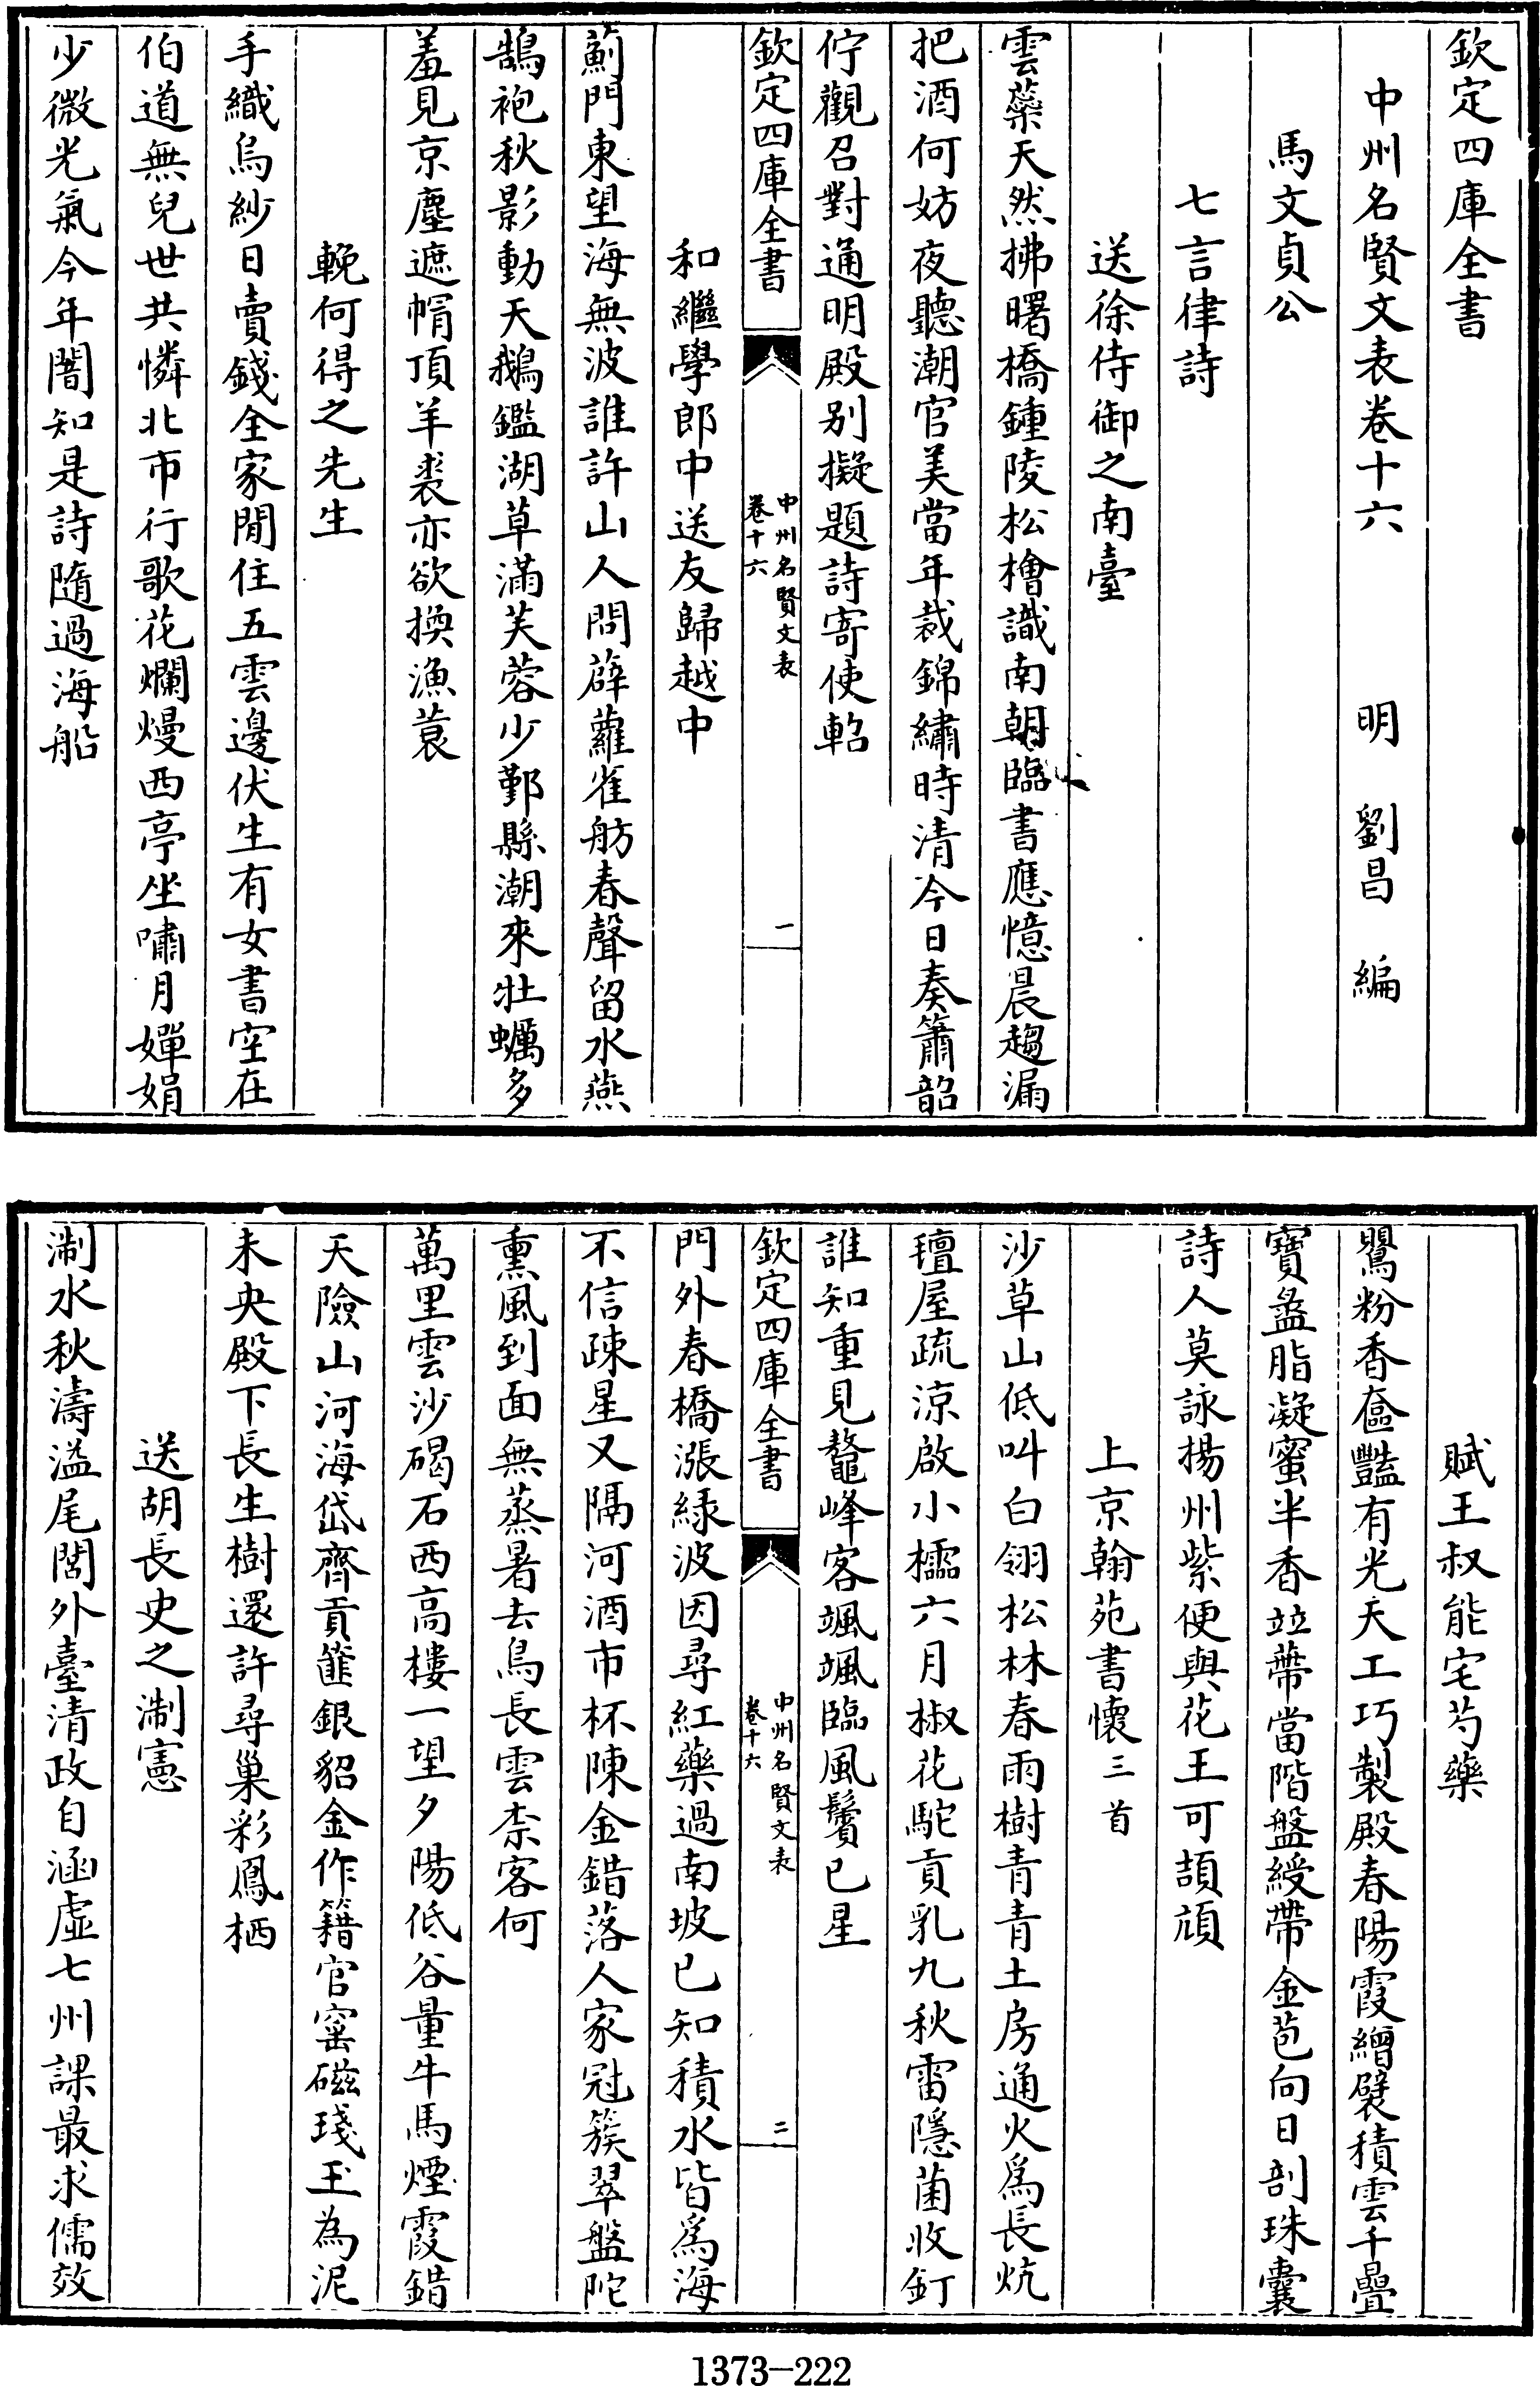 欽定四庫全書
中州名賢文表卷十六 明 劉昌 編
馬文貞公
七言律詩
送徐侍御之南臺
雲藥天然拂曙橋鍾陵松檜識南朝臨書應憶晨趨漏
把酒何妨夜聽潮官美當年裁錦繡時清今日奏簫韶
佇觀召對通明殿别擬題詩寄使軺
欽定四庫全書
中州名賢文表
卷十六
一
和繼學郎中送友歸越中
薊門東望海無波誰許山人問薜蘿雀舫春聲留水燕
鵠袍秋影動天鵝鑑湖草滿芙蓉少鄞縣潮來牡蠣多
羞見京塵遮帽頂羊裘亦欲換漁蓑
輓何得之先生
手織烏紗日賣錢全家閒住五雲邊伏生有女書空在
伯道無兒世共憐北市行歌花爛熳西亭坐嘯月嬋娟
少微光氣今年闇知是詩隨過海船
賦王叔能宅芍藥
鸎粉香奩豔有光天工巧製殿春陽霞繒襞積雲千疊
寶盝脂凝蜜半香竝蔕當階盤綬帶金苞向日剖珠囊
詩人莫詠揚州紫便與花王可頡頏
上京翰苑書懷三首
沙草山低叫白翎松林春雨樹青青土房通火爲長炕
氊屋疏涼啟小櫺六月椒花駝貢乳九秋雷隱菌收釘
誰知重見鼇峰客颯颯臨風鬢已星
欽定四庫全書
中州名賢文表
卷十六
二
門外春橋漲緑波因尋紅藥過南坡已知積水皆爲海
不信疎星又隔河酒市杯陳金錯落人家冠簇翠盤陀
熏風到面無蒸暑去鳥長雲柰客何
萬里雲沙碣石西高樓一望夕陽低谷量牛馬煙霞錯
天險山河海岱齊貢篚銀貂金作籍官窰磁琖玉為泥
未央殿下長生樹還許尋巢彩鳳栖
送胡長史之淛憲
淛水秋濤溢尾閭外臺清政自涵虛七州課最求儒效
1373-222